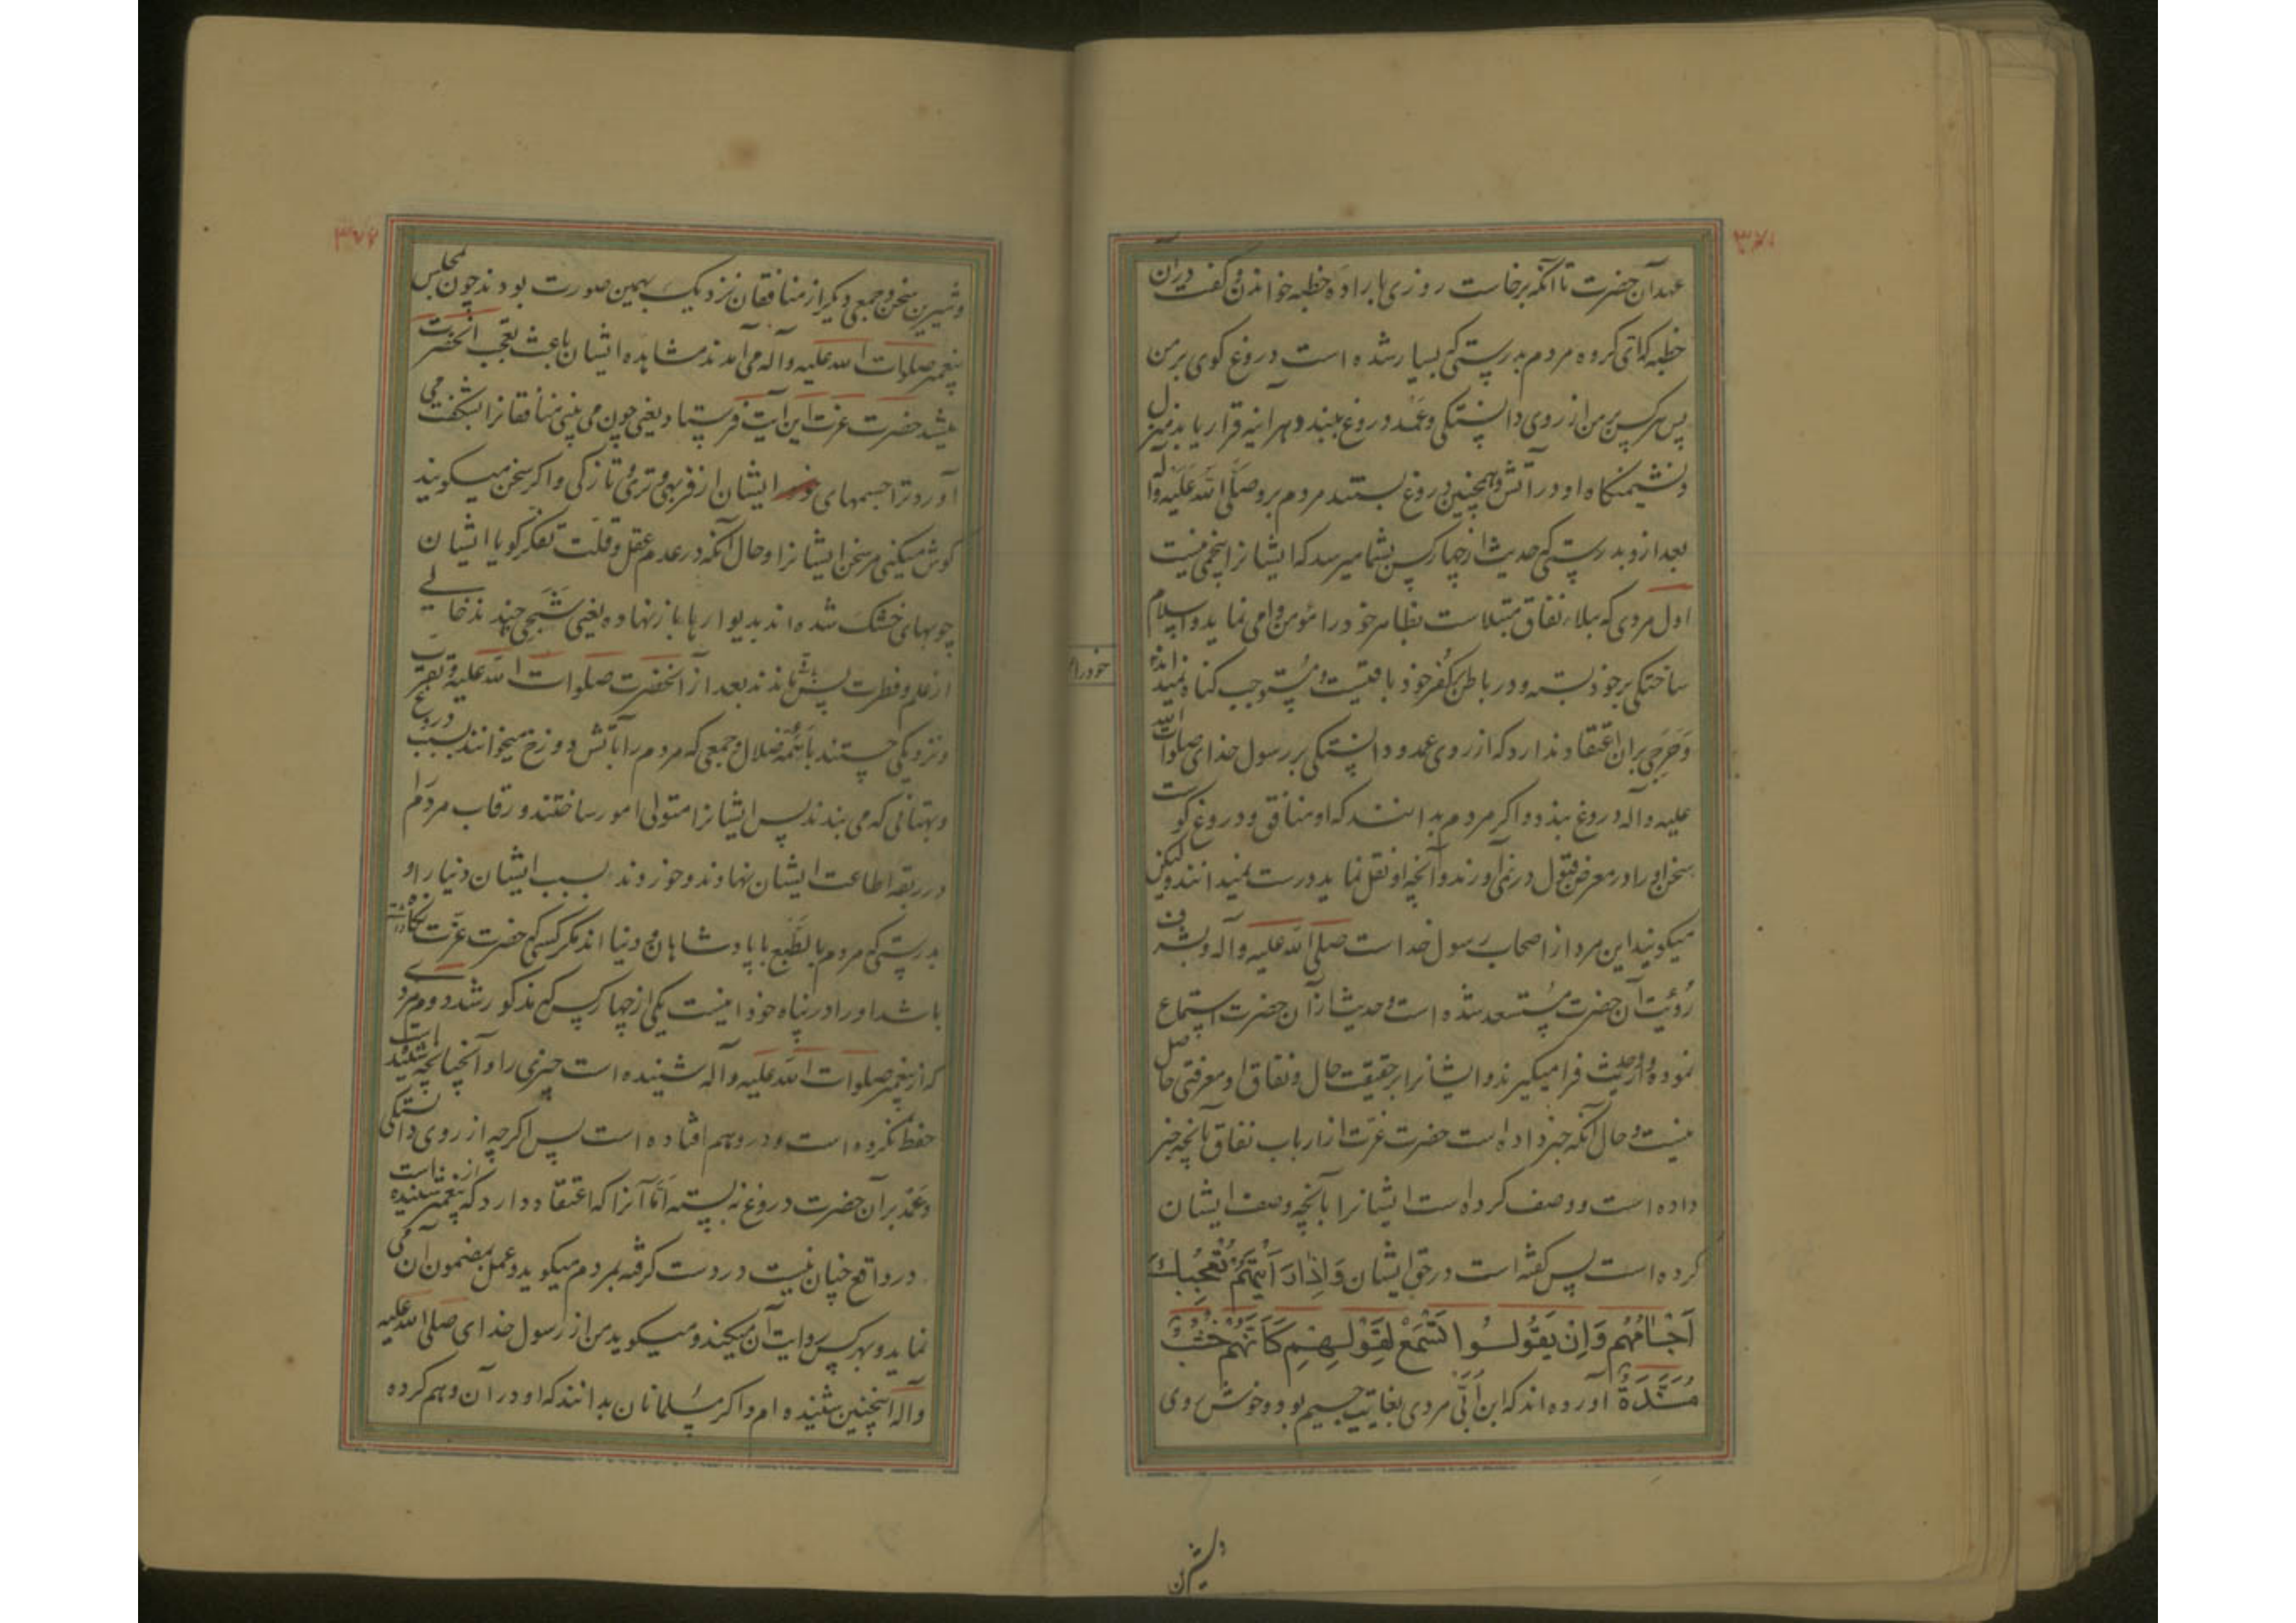 ۳۷۱
عهد آن حضرت تا آنکه برخاست روزی باراده خطبه خواندن و گفت در ان
خطبه که ای کروه مردم بدرستی که بسیار شده است دروغ کوی بر من
پس هر کس بر من از روی دانستکی و عمد دروغ ببندد هر آینه قرار یابد منزل
و نشیمنکاه او در آتش و همچنین دروغ بستند مردم برو صلّی الله علیه و آله
بعد ازو بدرستی که حدیث از چهار کس بشما میرسد که ایشانرا پنجمی نیست
اول مردی که ببلاء نفاق مبتلاست بظاهر خود را مؤمن وامی نماید و اسلام
ساختکی بر خود بسته و در باطن بکفر خود باقیست و مستوجب کناه نمیداند
وَ حَرَجی بران اعتقاد ندارد که از روی عمد و دانستکی بر رسول خدای صلوات الله
علیه و آله دروغ بندد و اکر مردم بدانند که او منافق و دروغ کوست
سخن او را در معرض قبول در نمی آورند و آنچه او نقل نماید درست نمیدانند ولیکن
میکویند این مرد از اصحاب رسول خداست صلی الله علیه و آله و بشرف
رؤیت آن حضرت مستسعد شده است و حدیث از آن حضرت استماع
نموده و ازو حدیث فرا میکیرند و ایشانرا بر حقیقت حال و نفاق او معرفتی حاصل
نیست و حال آنکه خبر داده است حضرت عزّت از ارباب نفاق بآنچه خبر
داده است و وصف کرده است ایشانرا بآنچه وصف ایشان
کرده است پس کفته است در حق ایشان وَاِذَا رَاَیْتَهُمْ تُعْجِبُكَ
اَجْسَامُهُم وَاِنْ یَقُولُوا تَسْمَعْ لِقَوْلِهِم كَاَنَّهُمْ خُشُبٌ
مُسَنَّدَةٌ آورده اند که ابن اُبَیّ مردی بغایت جسیم بود و خوش روی
و شیرین
خود را
و شیرین سخن و جمعی دیکر از منافقان نزدیک بهمین صورت بودند چون بمجلس
پیغمبر صلوات الله علیه و آله می آمدند مشاهده ایشان باعث تعجب آنحضرت
میشد حضرت عزت این آیت فرستاد یعنی چون می بینی منافقانرا بشکفت می
آورد ترا جسمهای ایشان از فربهی و تری و تازکی و اکر سخن میکویند
کوش میکنی مر سخن ایشانرا و حال آنکه در عدم عقل و قلّت تفکر کویا ایشان
چوبهای خشک شده اند بدیوارها باز نهاده یعنی شَبَحی چندند خالی
از علم و فطرت پس باقی ماندند بعد از آنحضرت صلوات الله علیه و تقرب
و نزدیکی جستند بائمّه ضلال و جمعی که مردم را بآتش دوزخ میخوانند بسبب دروغ
و بهتانی که می بندند پس ایشانرا متولی امور ساختند و رقاب مردم را
در ربقه اطاعت ایشان نهادند و خوردند بسبب ایشان دنیا را و
بدرستی که مردم بالطّبع با پادشاهان و دنیا اند مکر کسی که حضرت عزّت نکاه داشته
باشد او را در پناه خود اینست یکی از چهار کس که مذکور شد دوم مردی
که از پیغمبر صلوات الله علیه و آله شنیده است چیزی را و آنچنانچه شنیده است
حفظ نکرده است و در وهم افتاده است پس اکر چه از روی دانستکی
و عمد بر آن حضرت دروغ نه بسته امّا آنرا که اعتقاد دارد که از پیغمبر شنیده است
در واقع چنان نیست در دست کرفته بمردم میکوید و عمل بمضمون آن می
نماید و بهر کس روایت آن میکند و میکوید من از رسول خدای صلی الله علیه
و آله اینچنین شنیده ام و اکر مسلمانان بدانند که او در آن وهم کرده